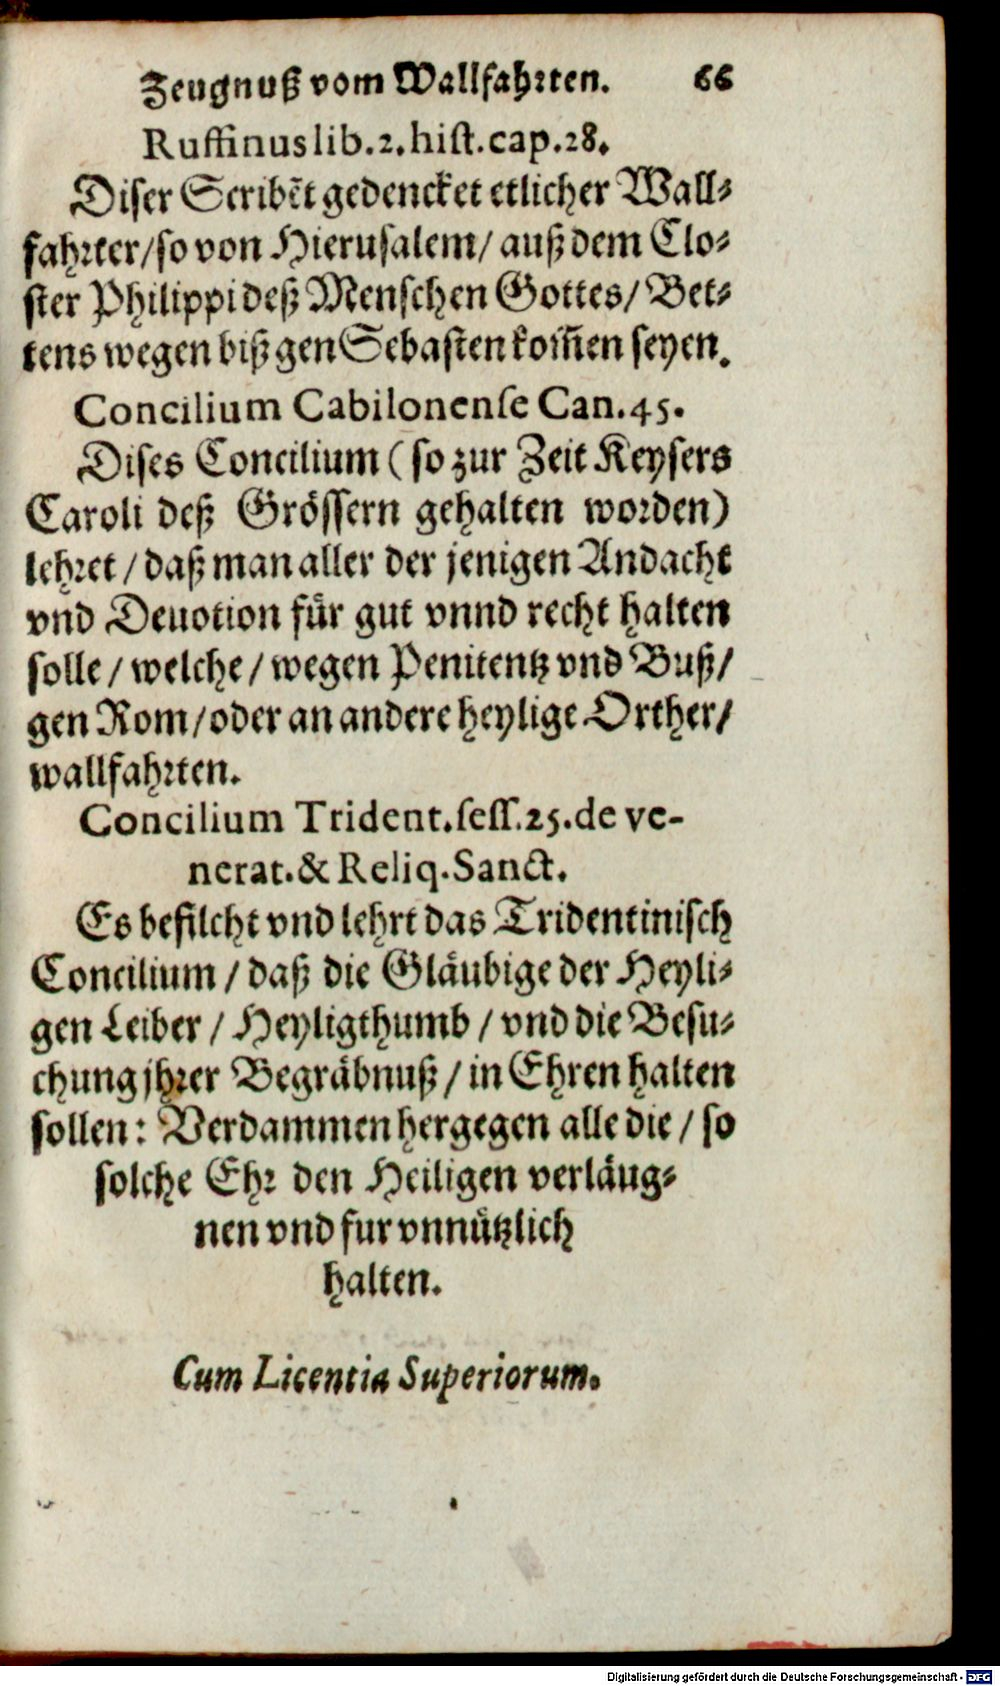 Zeugnuß vom Wallfahrten. 66
Ruffinus lib. 2. hist. cap. 28.
Diser Scribẽt gedencket etlicher Wall-
fahrter/ so von Hierusalem/ auß dem Clo-
ster Philippi deß Menschen Gottes/ Bet-
tens wegen biß gen Sebasten kom̃en seyen.
Concilium Cabilonense Can. 45.
Dises Concilium (so zur Zeit Keysers
Caroli deß Grössern gehalten worden)
lehret/ daß man aller der jenigen Andacht
vnd Deuotion für gut vnnd recht halten
solle/ welche/ wegen Penitentz vnd Buß/
gen Rom/ oder an andere heylige Orther/
wallfahrten.
Concilium Trident. sess. 25. de ve-
nerat. & Reliq. Sanct.
Es befilcht vnd lehrt das Tridentinisch
Concilium/ daß die Gläubige der Heyli-
gen Leiber/ Heyligthumb/ vnd die Besu-
chung jhrer Begräbnuß/ in Ehren halten
sollen: Verdammen hergegen alle die/ so
solche Ehr den Heiligen verläug-
nen vnd fur vnnützlich
halten.
Cum Licentia Superiorum.
Digitalisierung gefördert durch die Deutsche Forschungsgemeinschaft - DFG